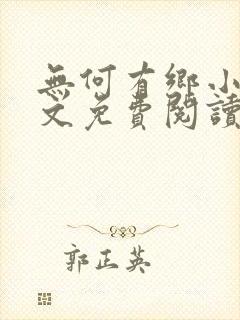 無何有鄉小
文免費閱讀
郭正英